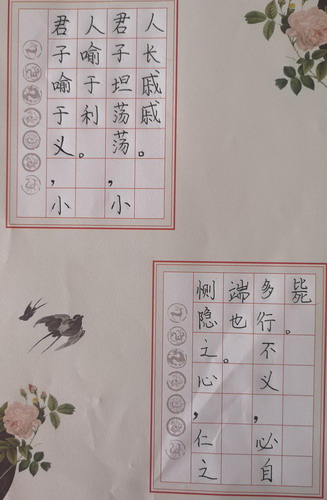 君子喻于义,小
人喻于利。
君子坦荡荡,小
人长戚戚。
恻隐之心,仁之
端也。
多行不义,必自
毙。